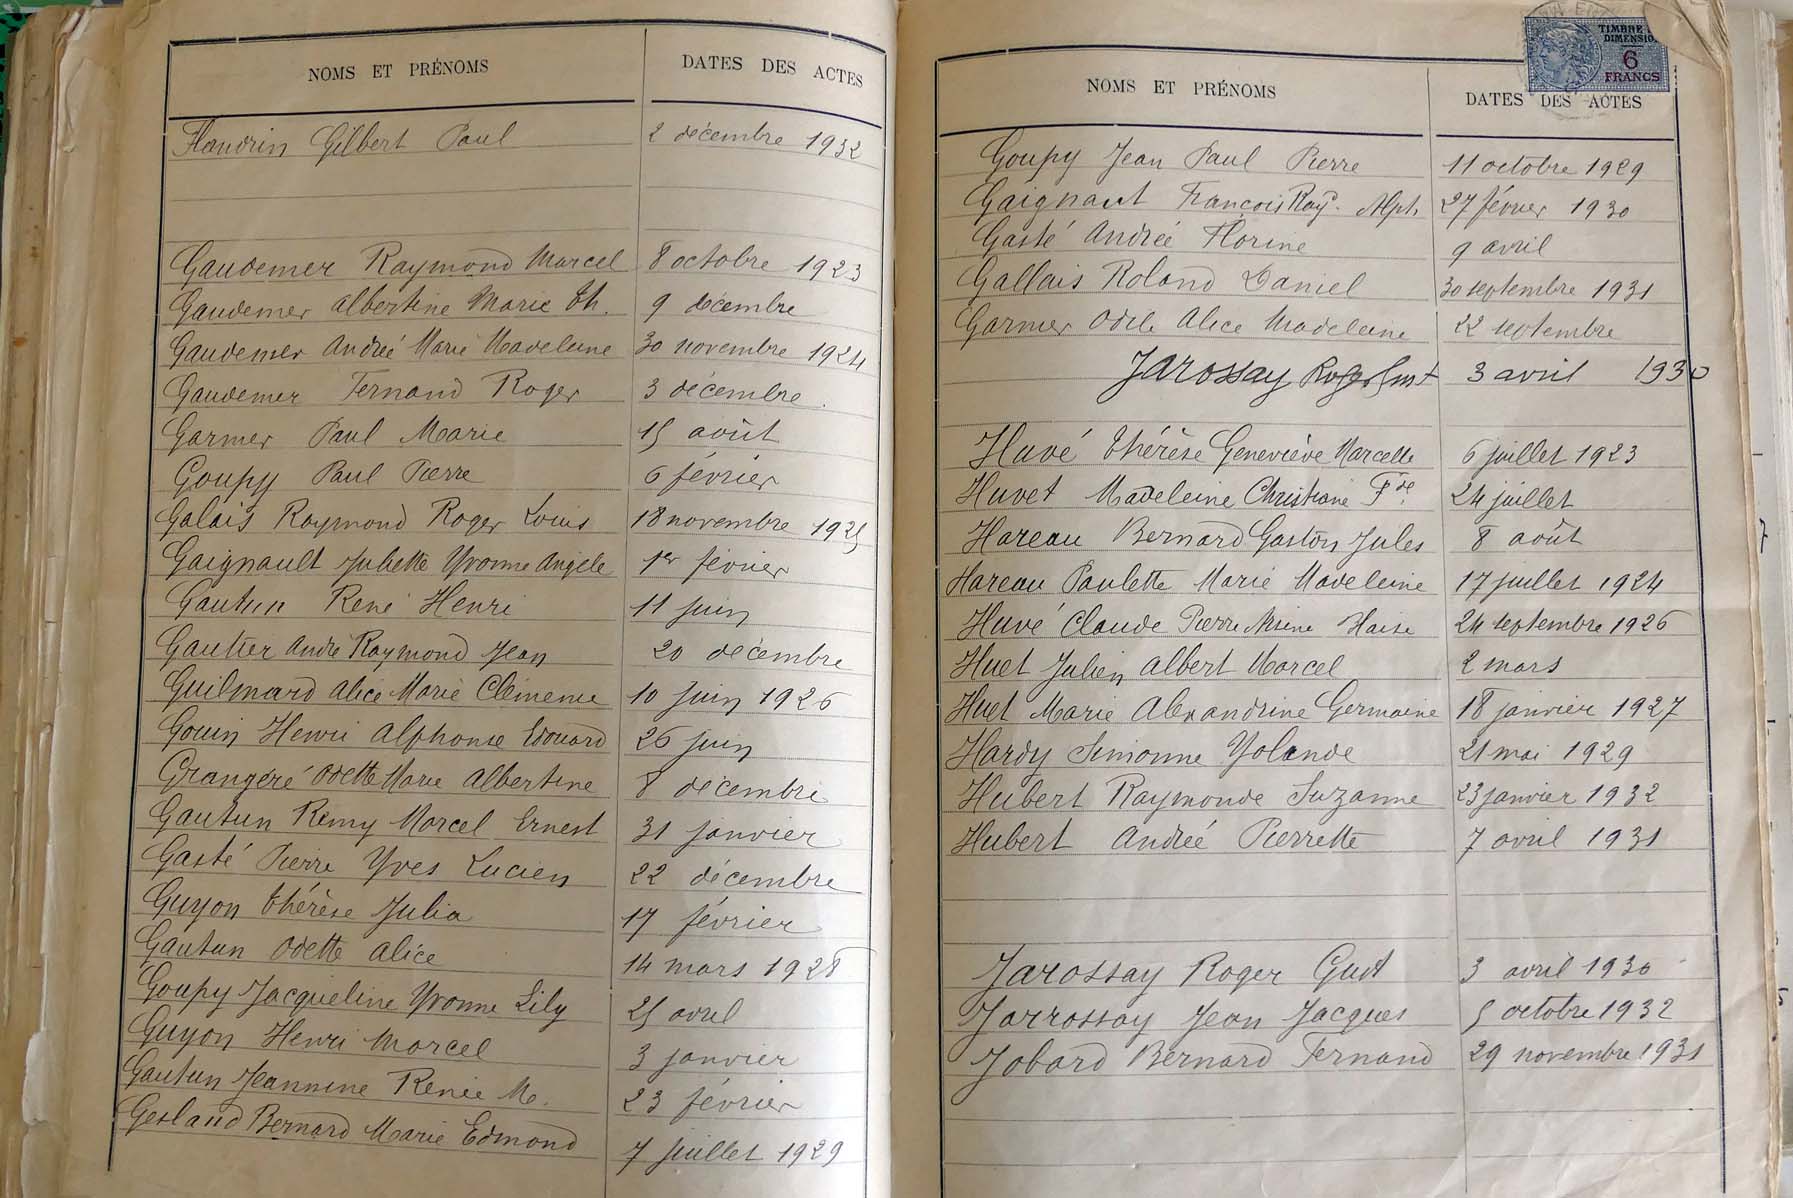 NOMS ET PRÉNOMS DATES DES ACTES
Flandrin Gilbert Paul 2 décembre 1932
Gaudemer Raymond Marcel 8 octobre 1923
Gaudemer Albertine Marie Th. 9 décembre
Gaudemer Andrée Marie Madeleine 30 novembre 1924
Gaudemer Fernand Roger 3 décembre
Garnier Paul Marie 15 août
Goupy Paul Pierre 6 février
Galais Raymond Roger Louis 18 novembre 1925
Gaignault Juliette Yvonne Angèle 1er février
Gautun René Henri 11 juin
Gautier André Raymond Jean 20 décembre
Guilmard Alice Marie Clémence 10 juin 1926
Gouin Henri Alphonse Edouard 26 juin
Grangéré Odette Marie Albertine 8 décembre
Gautun Rémy Marcel Ernest 31 janvier
Gasté Pierre Yves Lucien 22 décembre
Guyon Thérèse Julia 17 février
Gautun Odette Alice 14 mars 1928
Goupy Jacqueline Yvonne Lily 25 avril
Guyon Henri Marcel 3 janvier
Gautun Jeannine Renée M. 23 février
Gesland Bernard Marie Edmond 7 juillet 1929
TIMBRE
DIMENSION
6
FRANCS
NOMS ET PRÉNOMS DATES DES ACTES
Goupy Jean Paul Pierre 11 octobre 1929
Gaignaut François Ray. Alph. 27 février 1930
Gasté Andrée Florine 9 avril
Gallais Roland Daniel 30 septembre 1931
Garnier Odile Alice Madeleine 22 septembre
Jarossay Roger 3 avril 1930
Huvé Thérèse Geneviève Marcelle 6 juillet 1923
Huvet Madeleine Christiane Fde 24 juillet
Hareau Bernard Gaston Jules 8 août
Hareau Paulette Marie Madeleine 17 juillet 1924
Huvé Claude Pierre 24 septembre 1926
Huet Julien Albert Marcel 2 mars
Huet Marie Alexandrine Germaine 18 janvier 1927
Hardy Simonne Yolande 21 mai 1929
Hubert Raymonde Suzanne 23 janvier 1932
Hubert Andrée Pierrette 7 avril 1931
Jarossay Roger 3 avril 1930
Jarrossay Jean Jacques 5 octobre 1932
Jobard Bernard Fernand 29 novembre 1931